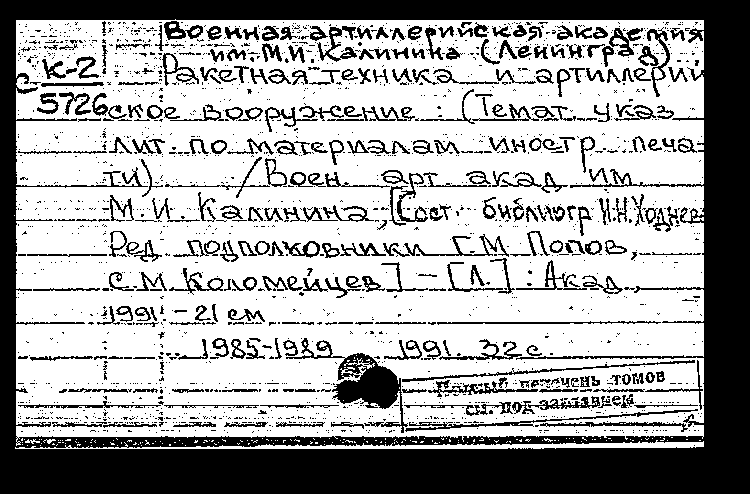 Военная артиллерийская академия
им. М.И. Калинина (Ленинград)
К-2
Ракетная техника и артиллерий
С 5726
ское вооружение : (Темат. указ
лит. по материалам иностр. печа-
ти). / Воен. арт. акад. им.
М. И. Калинина, [Сост. библиогр И.Н.Ходнева
Ред. подполковники Г.М. Попов,
С.М. Коломейцев] – [Л.] : Акад.,
1991 – 21 см
1985-1989 1991. 32 с.
Полный перечень томов
см. под заглавием